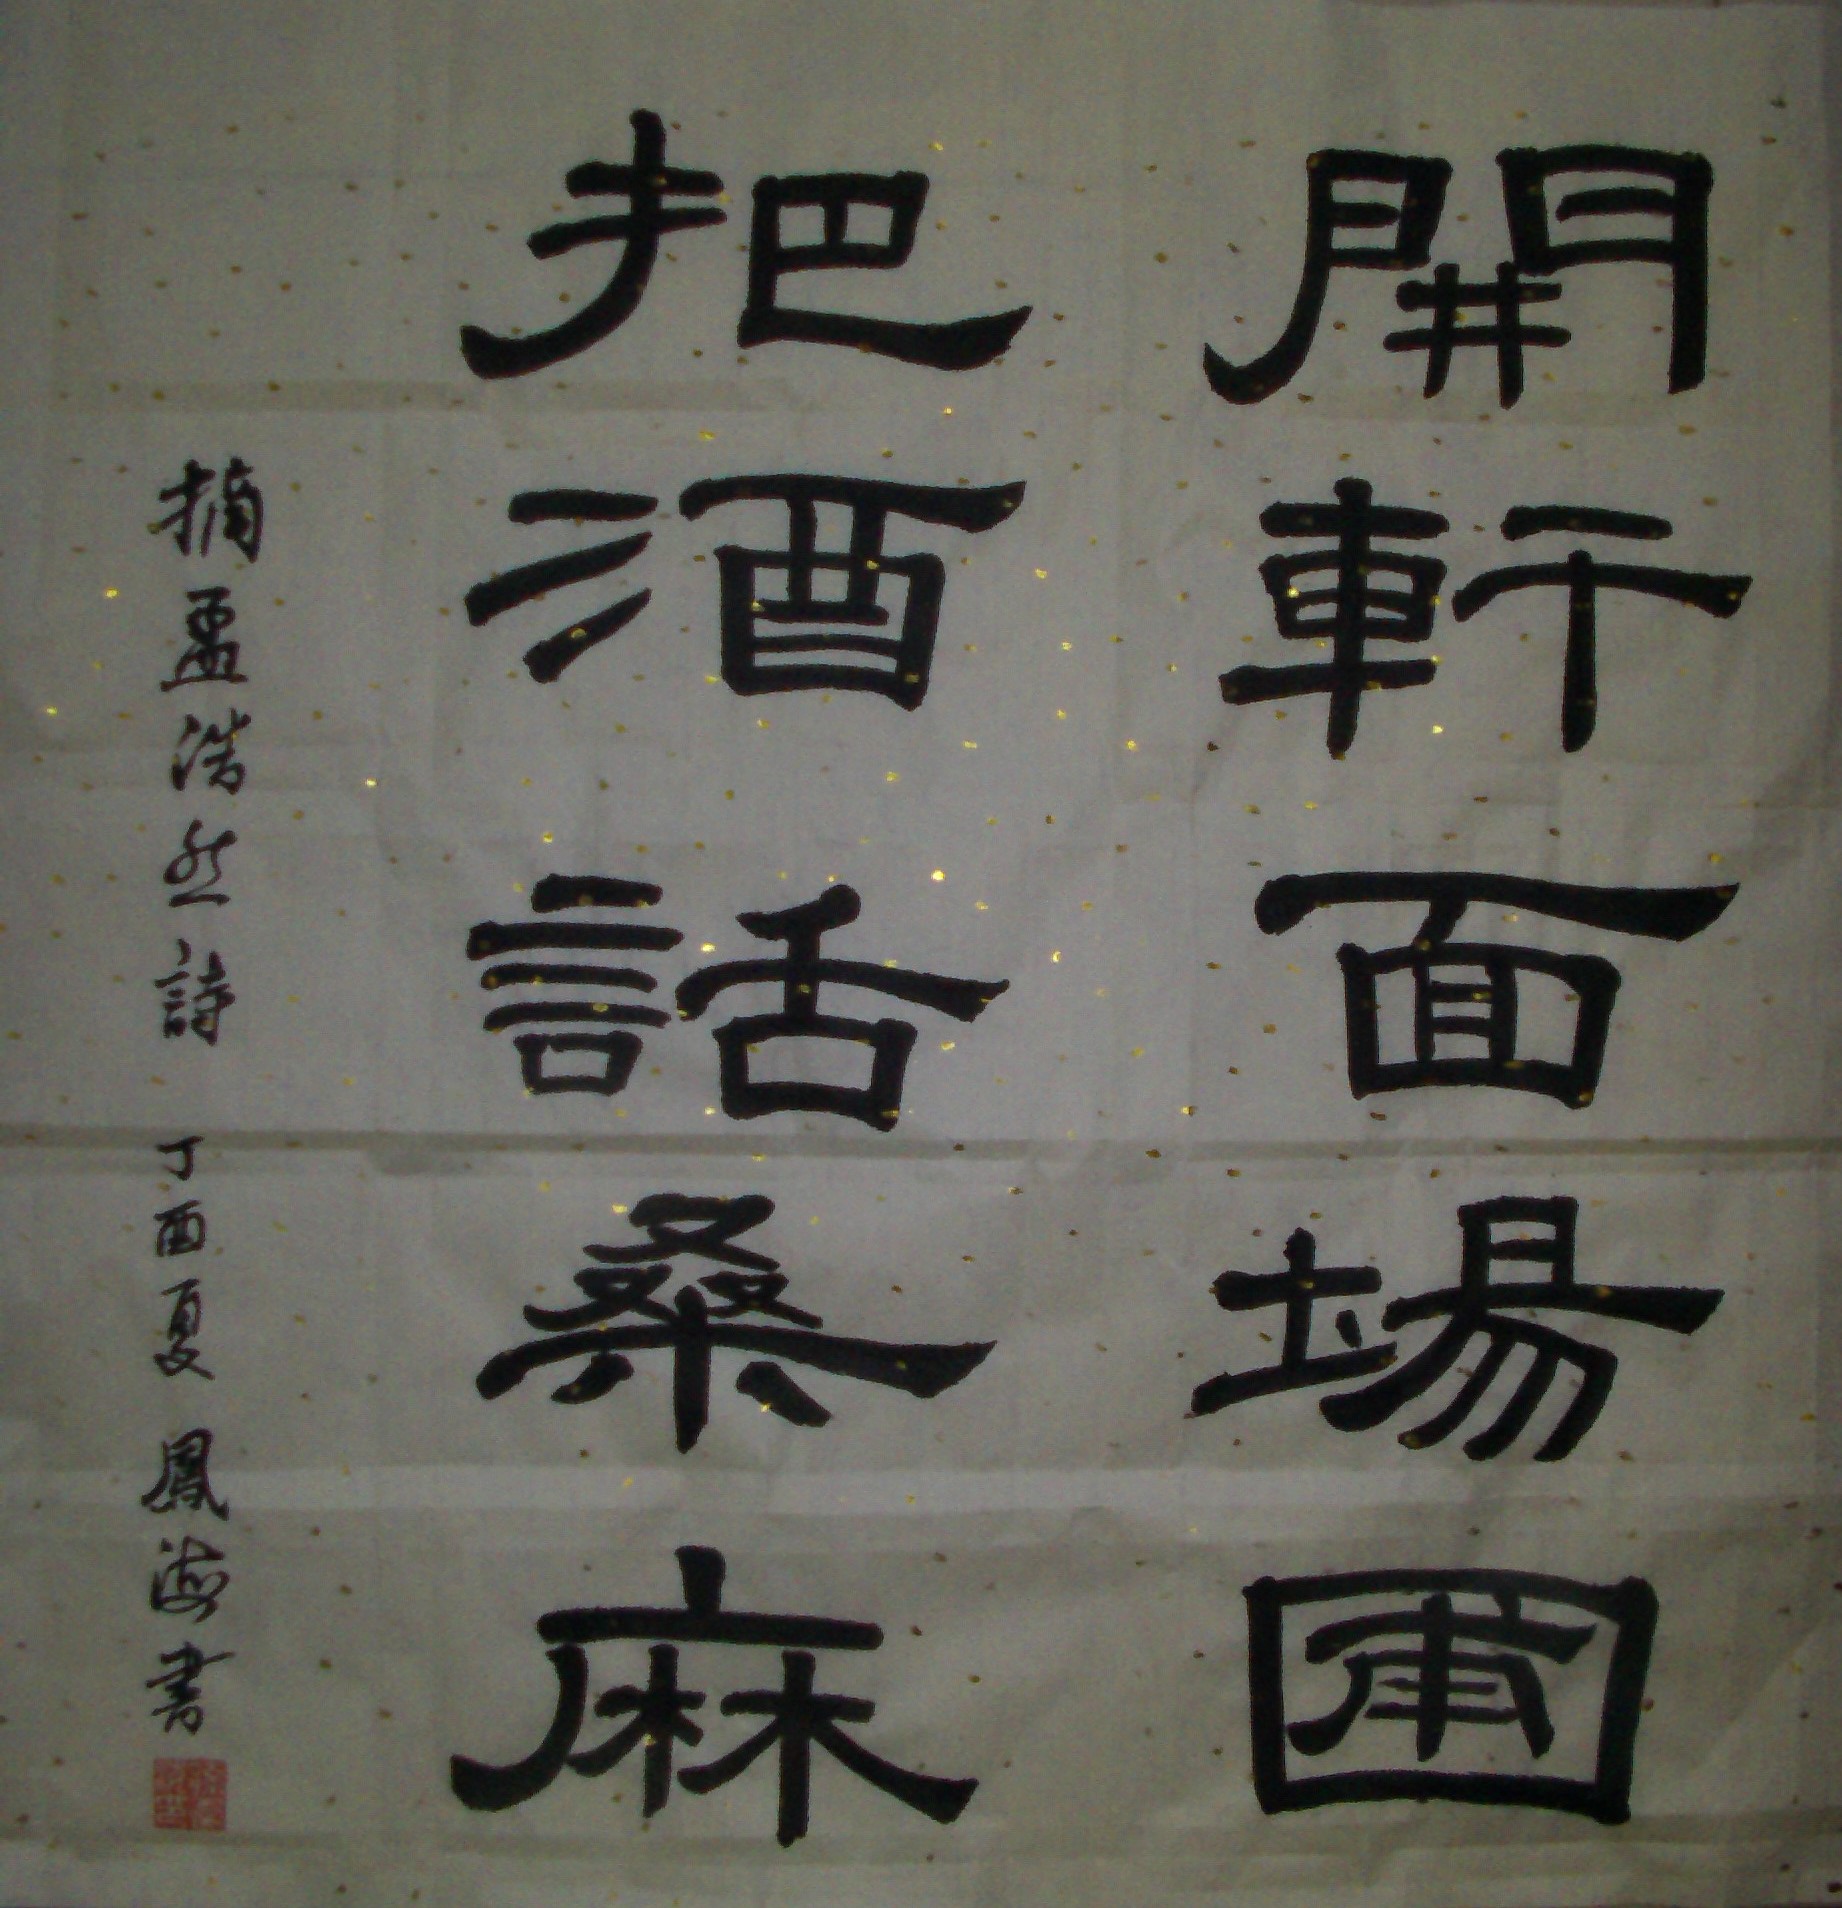 開軒面場圃
把酒話桑麻
摘孟浩然詩 丁酉夏 鳳海書